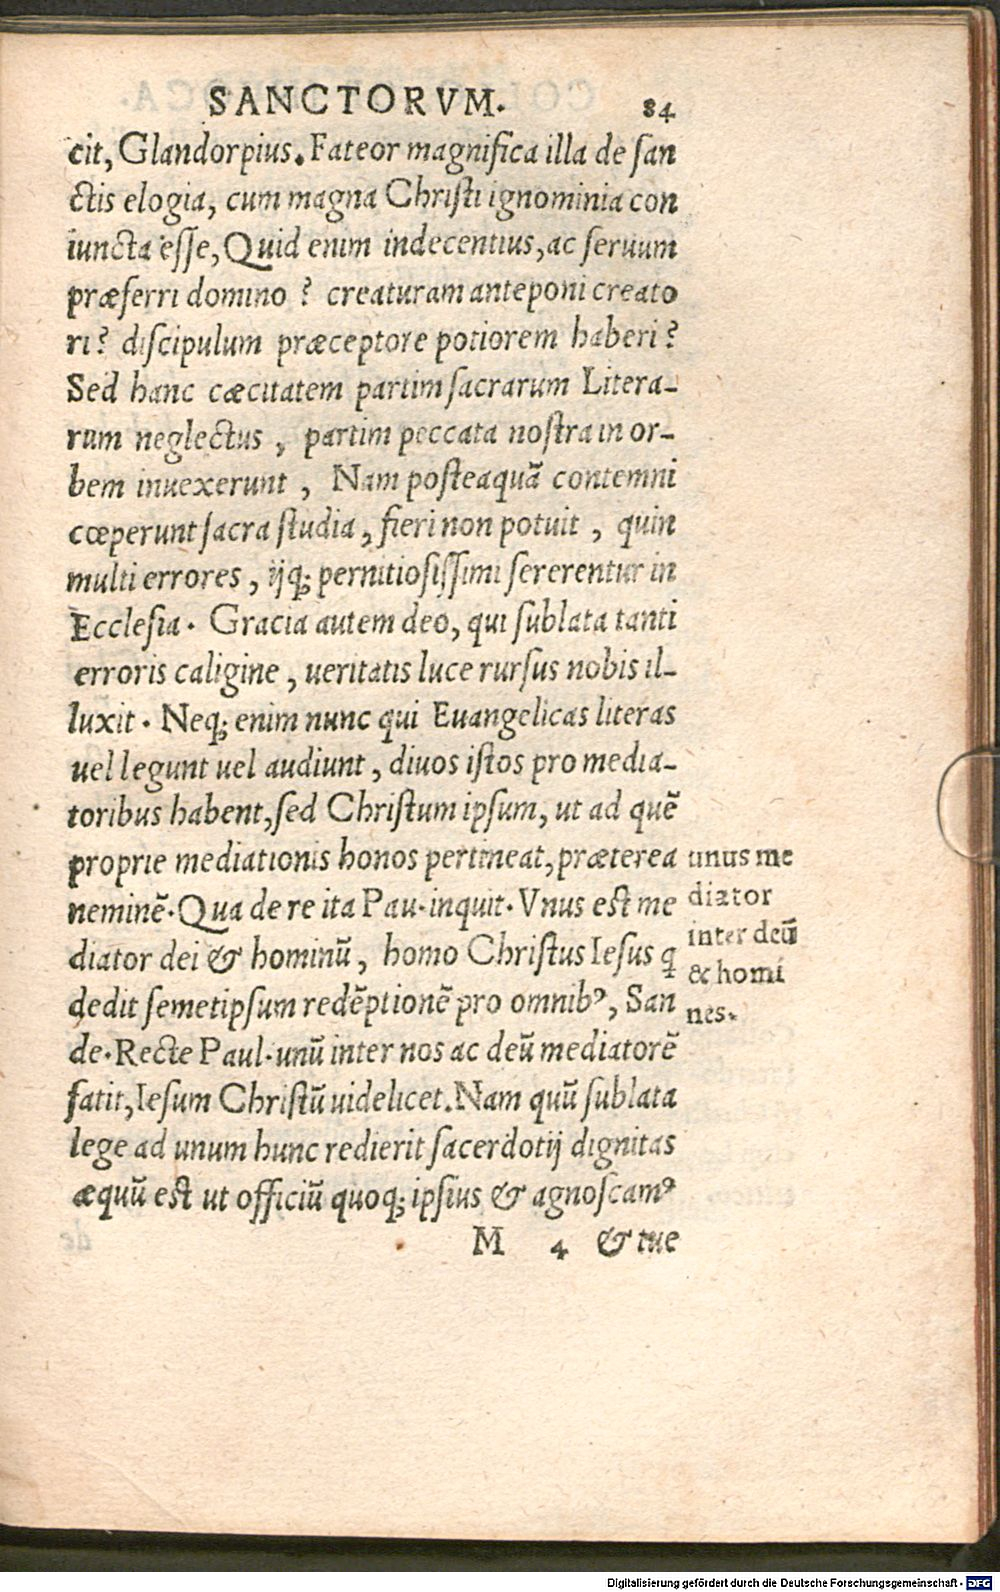 SANCTORVM. 84
cit, Glandorpius. Fateor magnifica illa de san
ctis elogia, cum magna Christi ignominia con
iuncta esse, Quid enim indecentius, ac seruum
præferri domino ? creaturam anteponi creato
ri? discipulum præceptore potiorem haberi?
Sed hanc cæcitatem partim sacrarum Litera-
rum neglectus , partim peccata nostra in or-
bem inuexerunt , Nam posteaquã contemni
cœperunt sacra studia, fieri non potuit , quin
multi errores , ijq; pernitiosissimi sererentur in
Ecclesia. Gracia autem deo, qui sublata tanti
erroris caligine , ueritatis luce rursus nobis il-
luxit. Neq; enim nunc qui Euangelicas literas
uel legunt uel audiunt, diuos istos pro media-
toribus habent, sed Christum ipsum, ut ad quẽ
proprie mediationis honos pertineat, præterea
neminẽ. Qua de re ita Pau. inquit. Vnus est me
diator dei & hominũ, homo Christus Iesus q
dedit semetipsum redẽptionẽ pro omnibꝰ, San
de. Recte Paul. unũ inter nos ac deũ mediatorẽ
fatit, Iesum Christũ uidelicet. Nam quũ sublata
lege ad unum hunc redierit sacerdotij dignitas
æquũ est ut officiũ quoq; ipsius & agnoscamꝰ
M 4 & tue
unus me
diator
inter deũ
& homi
nes.
Digitalisierung gefördert durch die Deutsche Forschungsgemeinschaft - DFG